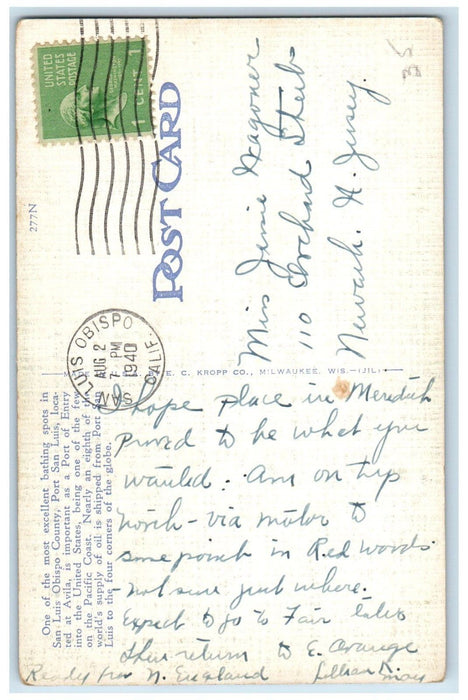 UNITED
STATES
POSTAGE
1 CENT 1
POST CARD
277N
SAN LUIS OBISPO
CALIF.
AUG 2
7 PM
1940
E. C. KROPP CO., MILWAUKEE, WIS.—(JIL)
One of the most excellent bathing spots in
San Luis Obispo County, Port San Luis, loca-
ted at Avila, is important as a Port of Entry
into the United States, being one of the few
on the Pacific Coast. Nearly an eighth of the
world's supply of oil is shipped from Port San
Luis to the four corners of the globe.
Miss Jennie Wagoner
110 Orchard Street
Newark, N. Jersey
I hope place in Meredith
proved to be what you
wanted. Am on trip
north - via motor to
some point in Redwoods
not sure just where.
Expect to go to Fair later
then return to E. Orange
Ready for N. England
Lillian K.